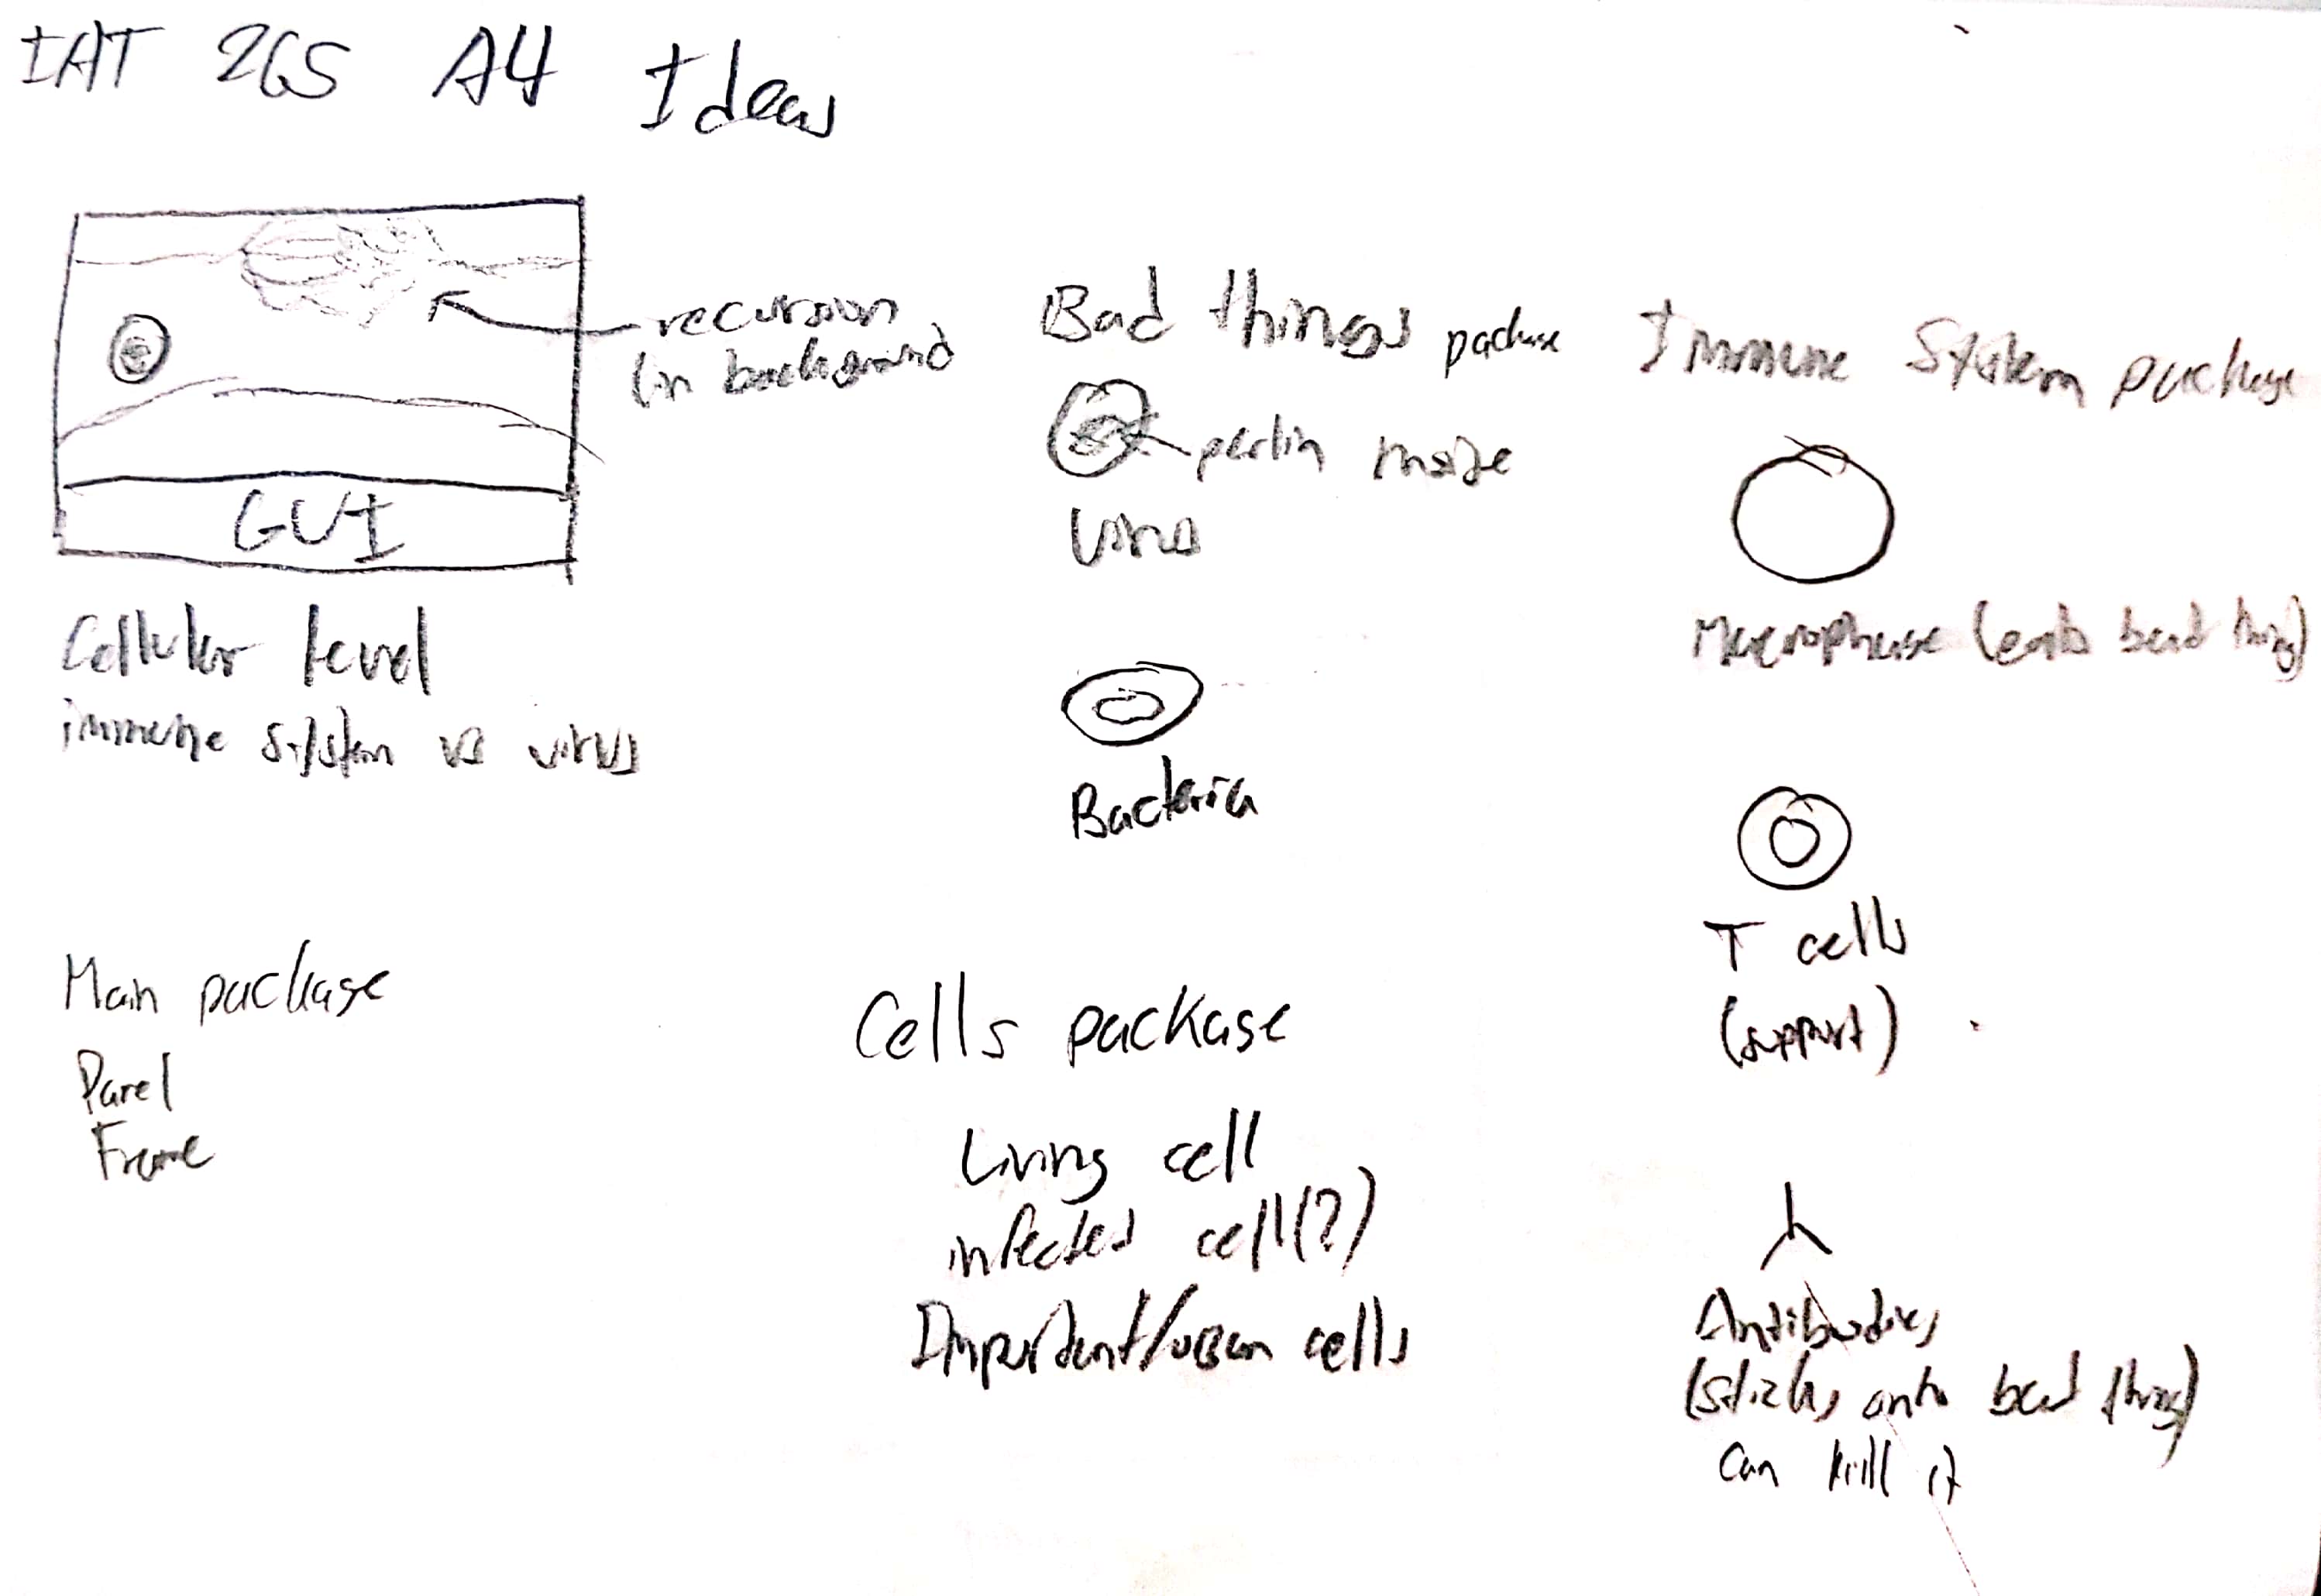 IAT 265 A4 Ideas
recursion
(in background)
GUI
Cellular level
immune system vs virus
Main package
Panel
Frame
Bad things package
perlin noise
Virus
Bacteria
Cells package
Living cell
infected cell(?)
Important/organ cells
Immune System package
Macrophage (eats bad thing)
T cells
(support)
Antibodies
(sticks onto bad thing)
can kill it